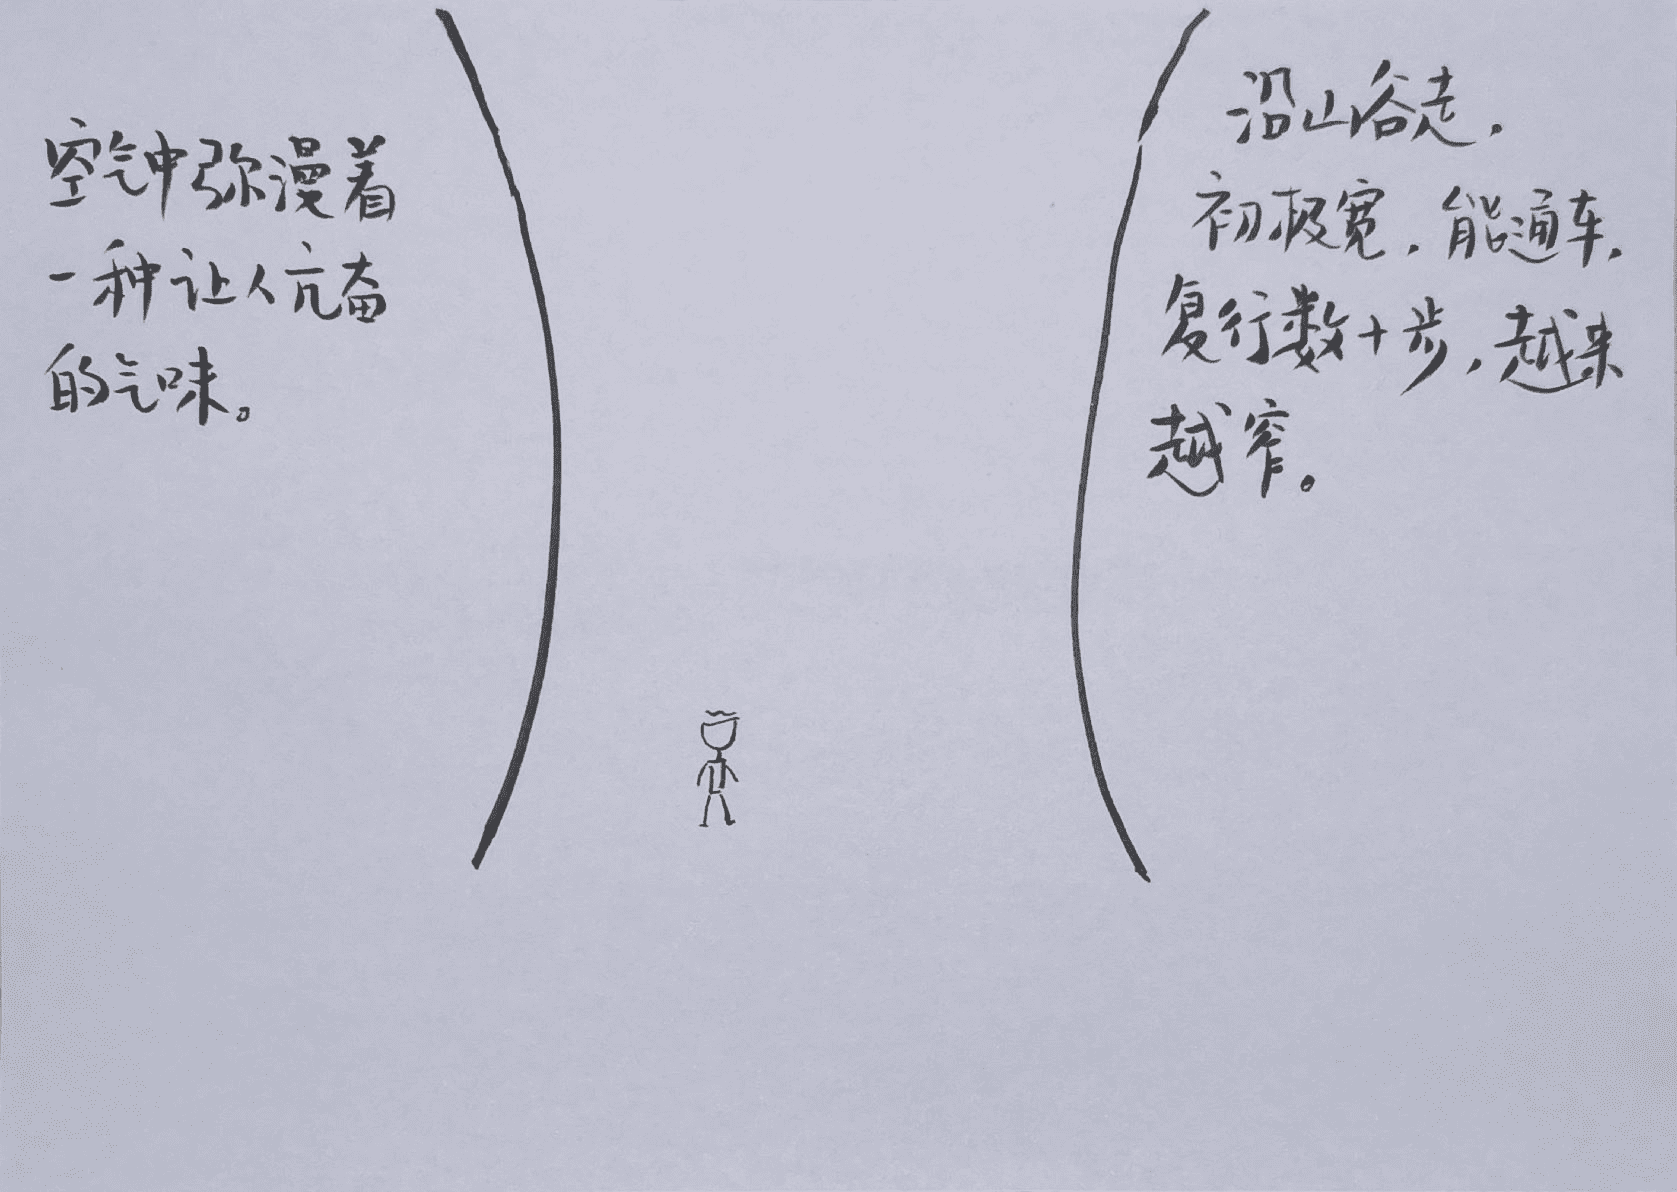 空气中弥漫着
一种让人亢奋
的气味。
沿山谷走，
初极宽，能通车，
复行数十步，越来
越窄。